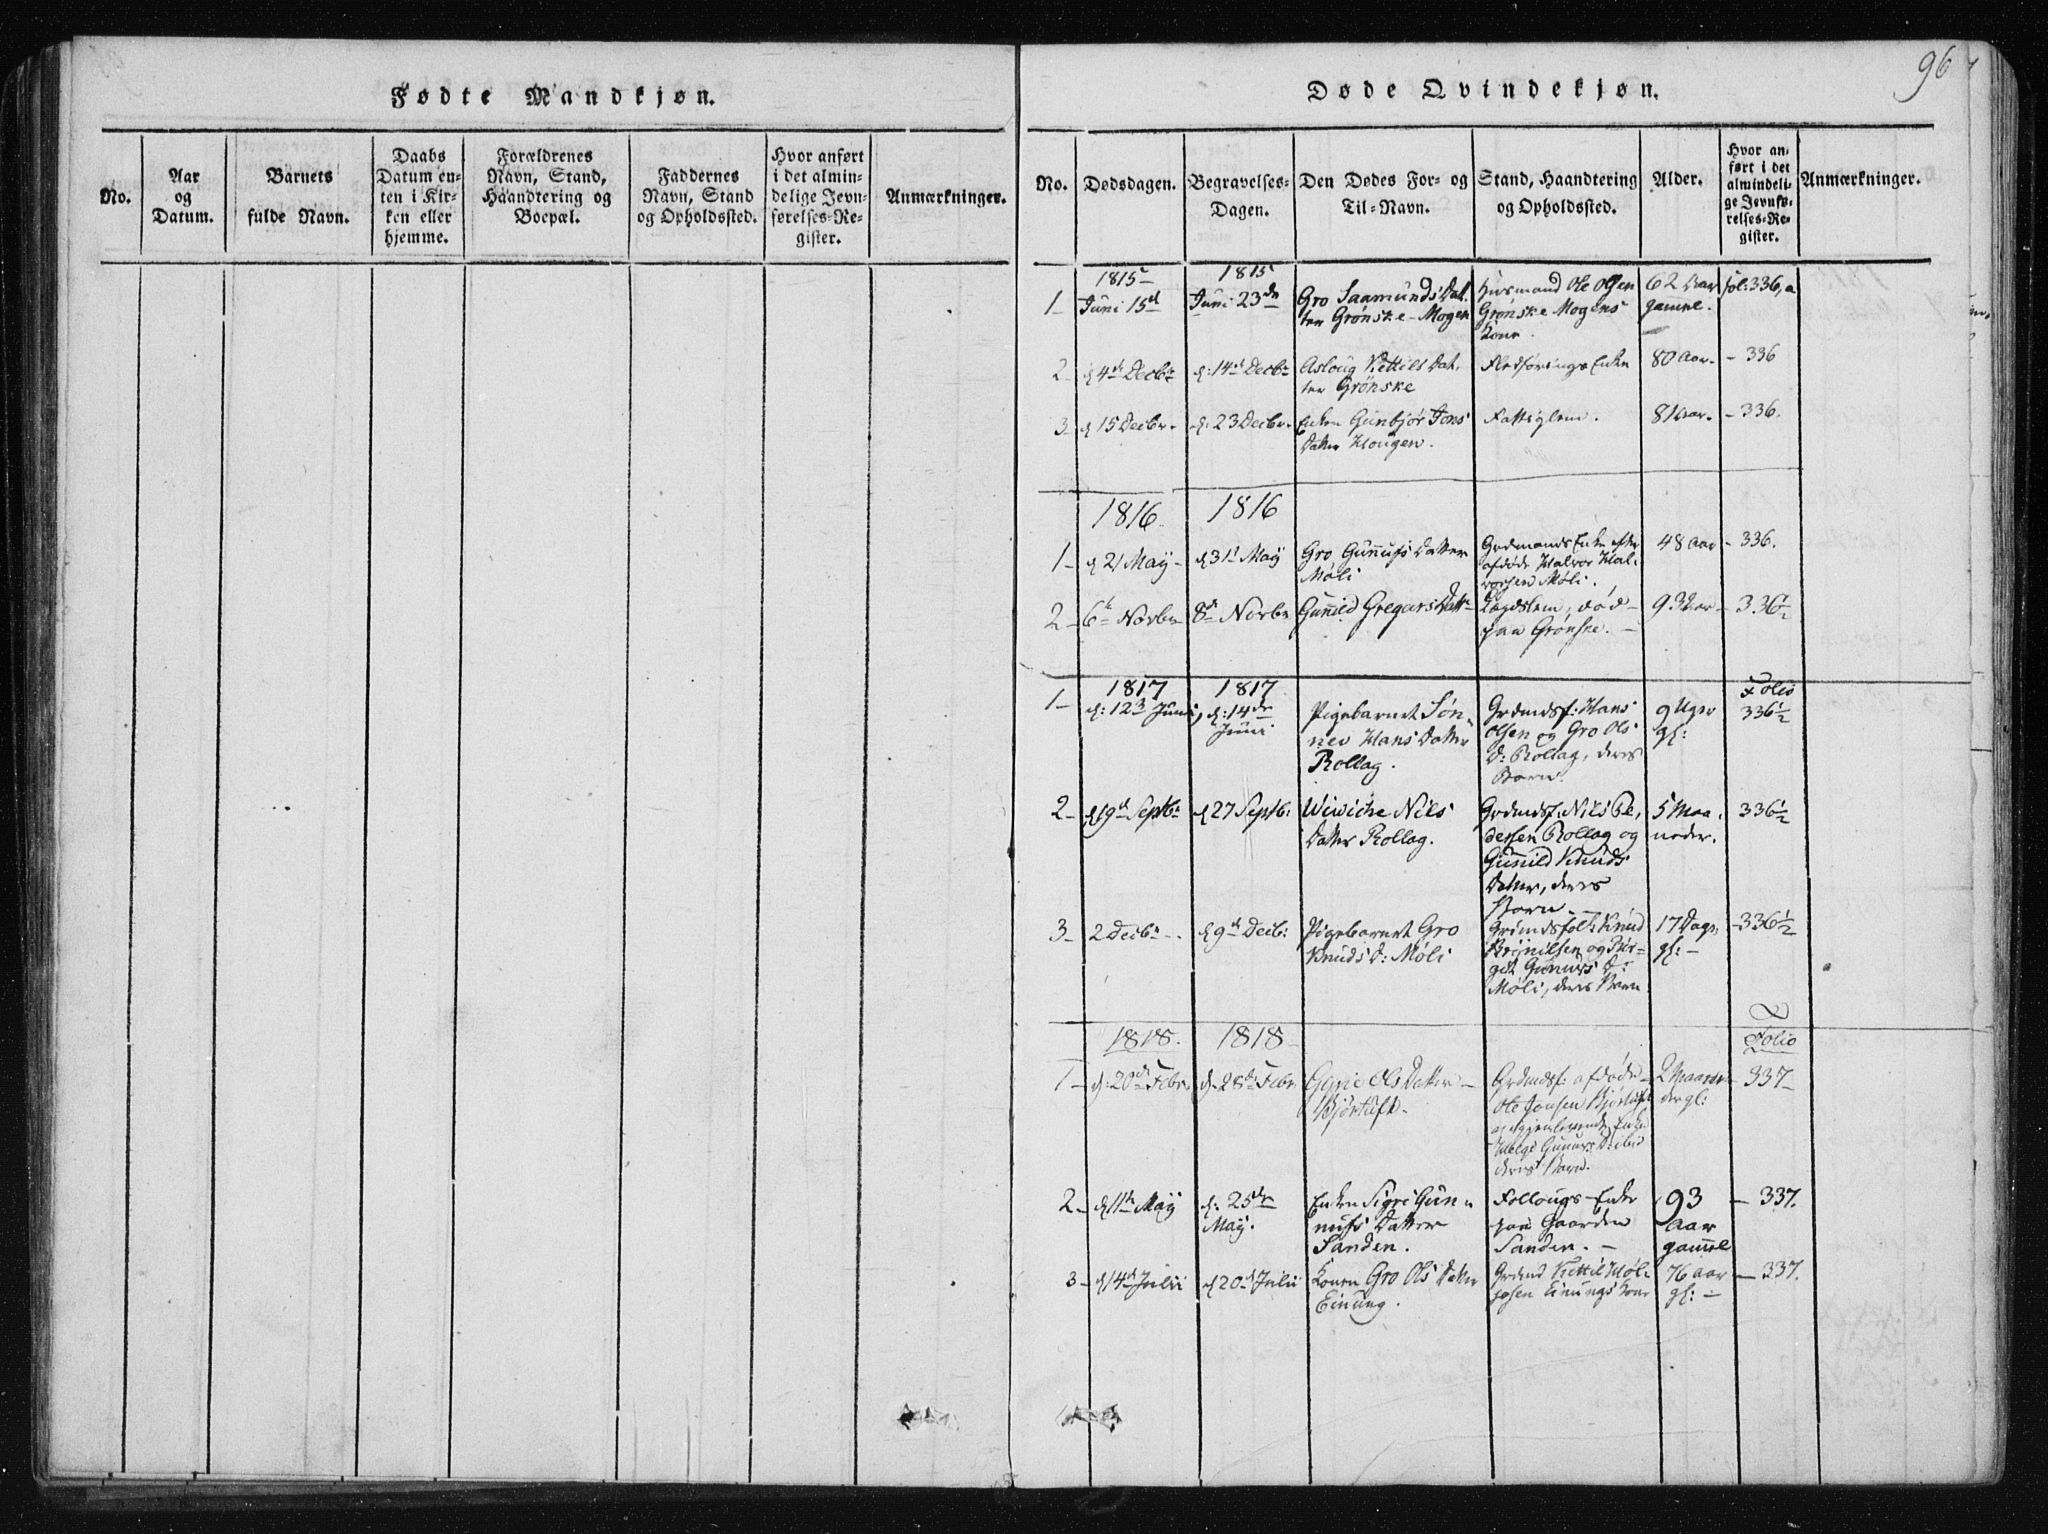 96
Fødte Mandkjøn.
No.
Aar
og
Datum.
Barnets
fulde Navn.
Daabs
Datum en-
ten i Kir-
ken eller
hjemme.
Forældrenes
Navn, Stand,
Haandtering og
Boepæl.
Faddernes
Navn, Stand
og Opholdssted.
Hvor anført
i det almin-
delige Jevn-
førelses-Re-
gister.
Anmærkninger.
Døde Qvindekjøn.
No.
Dødsdagen.
Begravelses-
Dagen.
Den Dødes For- og
Til-Navn.
Stand, Haandtering
og Opholdssted.
Alder.
Hvor an-
ført i det
almindeli-
ge Jevnfø-
relses-Re-
gister.
Anmærkninger.
1815
1815
1-
Juni 15d
Juni 23de
Gro Saamunds Dat-
ter Grønske-Mogen
Huusmand Ole Olsen
Grønske Mogens
Kone
62 Aar
gammel.
fol: 336, a
2-
d 4de Decbr
d: 14de Decbr
Asloug Kettils Dat,
ter Grønske
Fledførings Enke
80 Aar.
- 336
3
d 15 Decbr.
d: 23 Decbr.
Enken Gunbjør Jons
Datter Hougen.
Fattiglem.
81 Aar.
- 336.
1816
1816
1-
d 21 May-
d 31 May
Gro Gunnufs Datter
Møli
Grdmands Enke efter
afdøde Halvor Hal-
vorsen Møli.
48 Aar
- 336.
2-
6te Novbr
8de Novbr
Gunnild Gregars Dattr
Lægdslem, død
paa Grønske.
93 Aar
- 336½
1817
1817
Folio
1-
d: 12 Juni,
d: 14de
Juni
Pigebarnet Søn-
nev Hans Datter
Rollag.
Grdmdsf: Hans
Olsen og Gro Ols
D: Rollag, deres
Barn.
9 Uger
gl:
336½
2-
d 19d Septbr
d 27 Septb:
Wiviche Nils
Datter Rollag.
Grdmdsf: Nils Pe,
dersen Rollag og
Gunnild Knuds
Datter, deres
Barn.
5 Maa-
neder.
336½
3-
2 Decbr -
d 9de Decb:
Pigebarnet Gro
Knuds D: Møli
Grdmdsfolk Knud
Brynilsen og Bir-
git Gunnufs D:
Møli, deres Barn
17 Dage
gl: -
-336½
1818.
1818
Folio
1-
d: 20de Febr.
d. 28de Febr
Gyrie Ols Datter-
Bjørtuft.
Grdmdsf: afdøde
Ole Jonsen Bjørtuft
og gjenlevende Enke
Helge Gunnufs Datter
deres Barn.
2 Maane-
der gl:
- 337-
2-
d 11te May
d: 25de
May.
Enken Sigri Gun-
nufs Datter
Sanden.
Follougs-Enke
paa Gaarden
Sanden. -
93
Aar
gammel
- 337.
3-
d 14de Julii
d 20de Julii
Konen Gro Ols Datter
Einung.
Grdmd Kettil Hol-
josen Einungs Kone
76 Aar
gl: -
- 337.